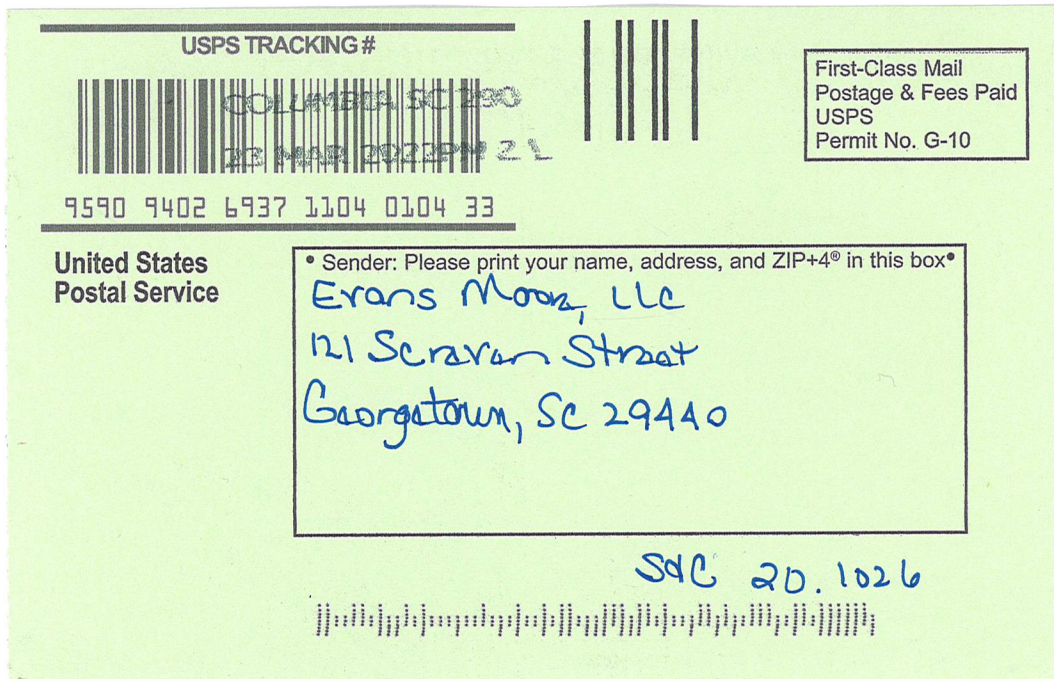 USPS TRACKING #
COLUMBIA SC 290
23 MAR 2022PM 2 L
9590 9402 6937 1104 0104 33
First-Class Mail
Postage & Fees Paid
USPS
Permit No. G-10
United States
Postal Service
• Sender: Please print your name, address, and ZIP+4® in this box•
Evans Moore, LLC
121 Screven Street
Georgetown, SC 29440
S&C 20.1026